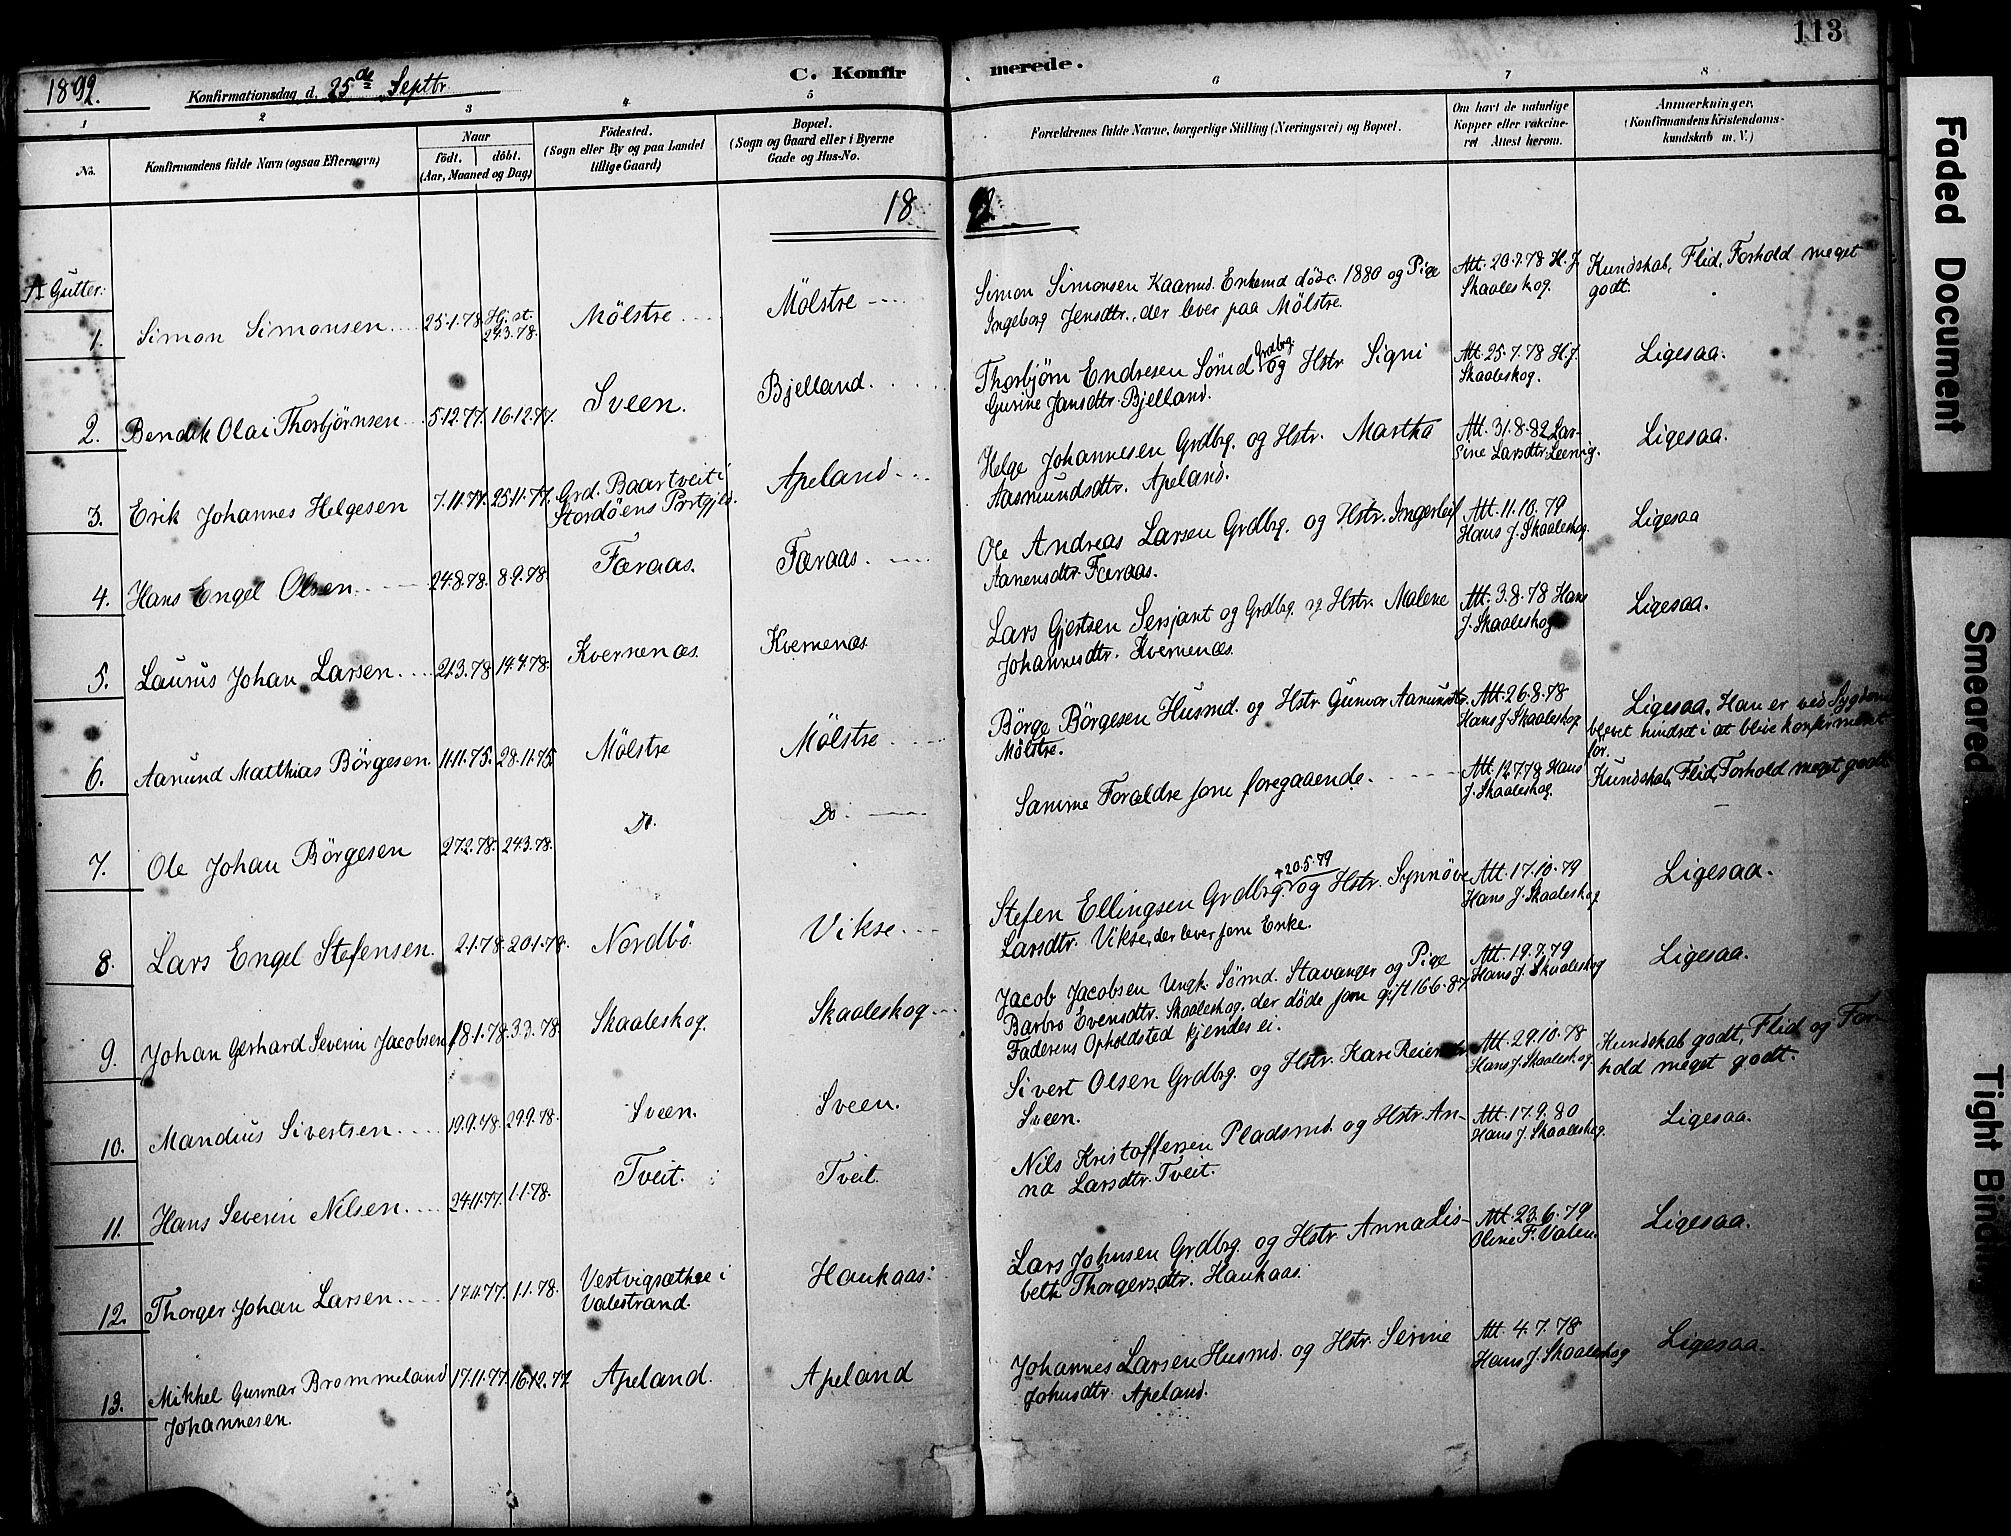 113
1892.
Konfirmationsdag d. 25de Septbr.
C. Konfirmerede.
1 2 3 4 5 6 7 8
No.
Konfirmandens fulde Navn (ogsaa Efternavn)
Naar
födt. döbt.
(Aar, Maaned og Dag)
Födested.
(Sogn eller By og paa Landet
tillige Gaard)
Bopæl.
(Sogn og Gaard eller i Byerne
Gade og Hus-No.
Forældrenes fulde Navne, borgerlige Stilling (Næringsvei) og Bopæl.
Om havt de naturlige
Kopper eller vakcine-
ret Attest herom.
Anmærkninger.
(Konfirmandens Kristendoms-
kundskab m. V.)
1892
A Gutter:
1. Simon Simonsen 25.1.78. Hj. st. 24.3.78. Mölstre Mölstre
Simon Simonsen Enkemd döde 1880 og Pige
Ingeborg Jensdtr., der lever paa Mölstre.
Att. 20.7.78 H. J.
Skaaleskog.
Kundskab, Flid, Forhold meget
godt.
2. Bendik Olai Thorbjörnsen 5.12.77. 16.12.77. Sveen. Bjelland.
Thorbjörn Endresen Sömd Grdbrg. og Hstr. Signi
Gurine Jansdtr. Bjelland.
Att. 25.7.78 H. J.
Skaaleskog.
Ligesaa.
3. Erik Johannes Helgesen 7.11.77. 25.11.77. Grd. Baartveit i
Stordöens Prstgjld. Apeland
Helge Johannesen Grdbrg. og Hstr. Martha
Aasmundsdtr. Apeland.
Att. 31.8.82 Lar-
sine Larsdtr. Leervig.
Ligesaa.
4. Hans Engel Olsen 24.8.78. 8.9.78. Færaas. Færaas.
Ole Andreas Larsen Grdbrg. og Hstr. Ingerleif
Aanensdtr. Færaas.
Att. 11.10.79
Hans J. Skaaleskog.
Ligesaa
5. Laurus Johan Larsen 21.3.78 14.4.78. Kvernenæs. Kvernenæs
Lars Gjertsen Sersjant og Grdbrg. og Hstr. Malene
Johannesdtr. Kvernenæs.
Att. 3.8.78 Hans
J. Skaaleskog
Ligesaa.
6. Aamund Matthias Börgesen 11.11.75. 28.11.75. Mölstre Mölstre
Börge Börgesen Husmd. og Hstr Gunvor Aamundsdtr.
Mölstre.
Att. 26.8.78
Hans J. Skaaleskog
Ligesaa, Han er ved Sygdom
blevet hindret i at blive konfirmeret
för.
7. Ole Johan Börgesen 27.2.78. 24.3.78. Do. Do.
Samme Forældre som foregaaende.
Att. 12.7.78 Hans
J. Skaaleskog.
Kundskab, Flid, Forhold meget godt
8. Lars Engel Stefensen. 2.1.78. 20.1.78. Nordbö. Vikse.
Stefen Ellingsen Grdbrg. +20.5.79 og Hstr. Synnöve
Larsdtr. Vikse, der lever som Enke.
Att. 17.10.79
Hans J. Skaaleskog
Ligesaa.
9. Johan Gerhard Severin Jacobsen 18.1.78. 3.3.78. Skaaleskog. Skaaleskog
Jacob Jacobsen Ungk. Sömd. Stavanger og Pige
Barbro Evensdtr. Skaaleskog, der döde som gift 16.6.87.
Faderens Opholdsted kjendes ei.
Att. 19.7.79
Hans J. Skaaleskog
Ligesaa.
10. Mandius Sivertsen 19.9.78. 29.9.78. Sveen. Sveen.
Sivert Olsen Grdbrg. og Hstr. Kari
Sveen.
Att. 29.10.78
Hans J. Skaaleskog.
Kundskab godt, Flid og For-
hold meget godt.
11. Hans Severin Nilsen. 24.11.77. 1.1.78. Tveit. Tveit.
Nils Kristoffersen Pladsmd. og Hstr. An-
na Larsdtr. Tveit.
Att. 17.9.80
Hans J. Skaaleskog.
Ligesaa.
12. Thorger Johan Larsen. 1.1.78. Vestvigsæthre i
Valestrand. Haukaas.
Lars Johnsen Grdbrg. og Hstr. Anna Lis-
beth Thorgersdtr. Haukaas.
Att. 23.6.79
Oline F. Valen.
Ligesaa.
13. Mikkel Gunnar Brommeland
Johannesen. 17.11.77. 16.12.77. Apeland. Apeland
Johannes Larsen Husmd. og Hstr. Serine
Johnsdtr. Apeland.
Att. 4.7.78
Hans J. Skaaleskog
Ligesaa.
Faded Document
Smeared
Tight Binding